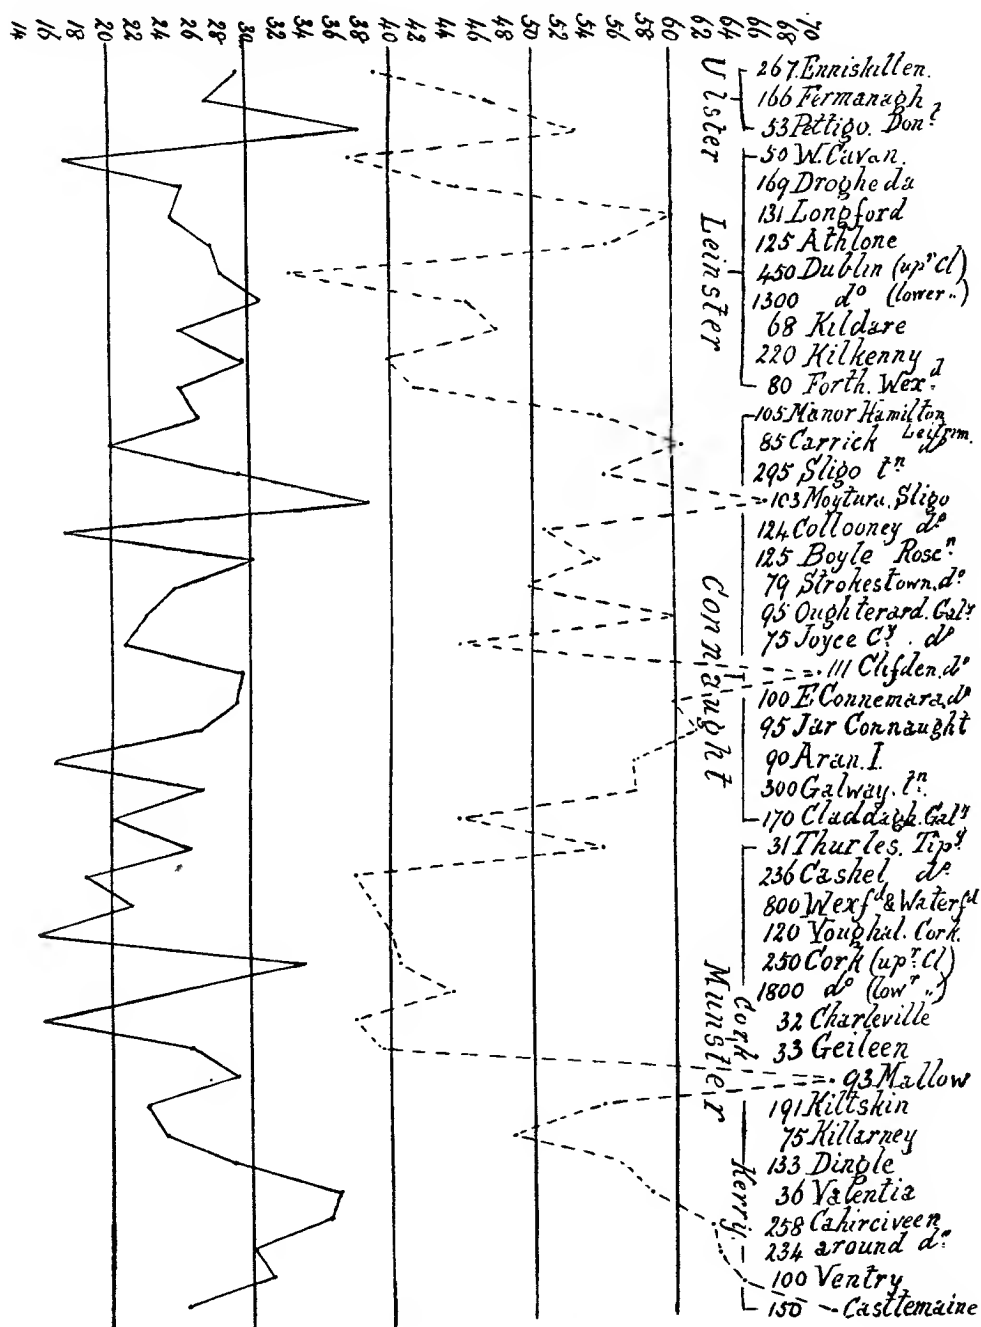 14 16 18 20 22 24 26 28 30 32 34 36 38 40 42 44 46 48 50 52 54 56 58 60 62 64 66 68 70
Ulster
267 Enniskillen.
166 Fermanagh
53 Pettigo. Don.l
Leinster
50 W. Cavan.
169 Drogheda
131 Longford
125 Athlone
450 Dublin (upr Cl)
1300 do (lower „)
68 Kildare
220 Kilkenny
80 Forth. Wex.d
Connaught
105 Manor Hamilton
Leitrm.
85 Carrick do
295 Sligo tn
103 Moytura. Sligo
124 Collooney do
125 Boyle Rosc.n
79 Strokestown. do
95 Oughterard. Galy
75 Joyce Cy. do
111 Clifden. do
100 E Connemara. do
95 Jar Connaught
90 Aran. I.
300 Galway. tn.
170 Claddagh. Galy
Munster
31 Thurles. Tipy
236 Cashel do
800 Wexfd & Waterfd
120 Youghal. Cork.
Cork
250 Cork (upr. Cl)
1800 do (lowr „)
32 Charleville
33 Geileen
93 Mallow
191 Kiltskin
Kerry.
75 Killarney
133 Dingle
36 Valentia
258 Cahirciveen
234 around do
100 Ventry
150 Casttemaine